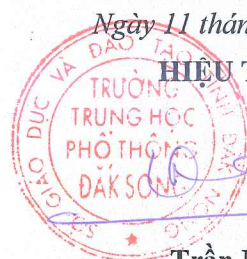 Ngày 11 thán
HIỆU T
SỞ GIÁO DỤC VÀ ĐÀO TẠO TỈNH ĐẮK NÔNG
TRƯỜNG
TRUNG HỌC
PHỔ THÔNG
ĐẮK SONG
Trần